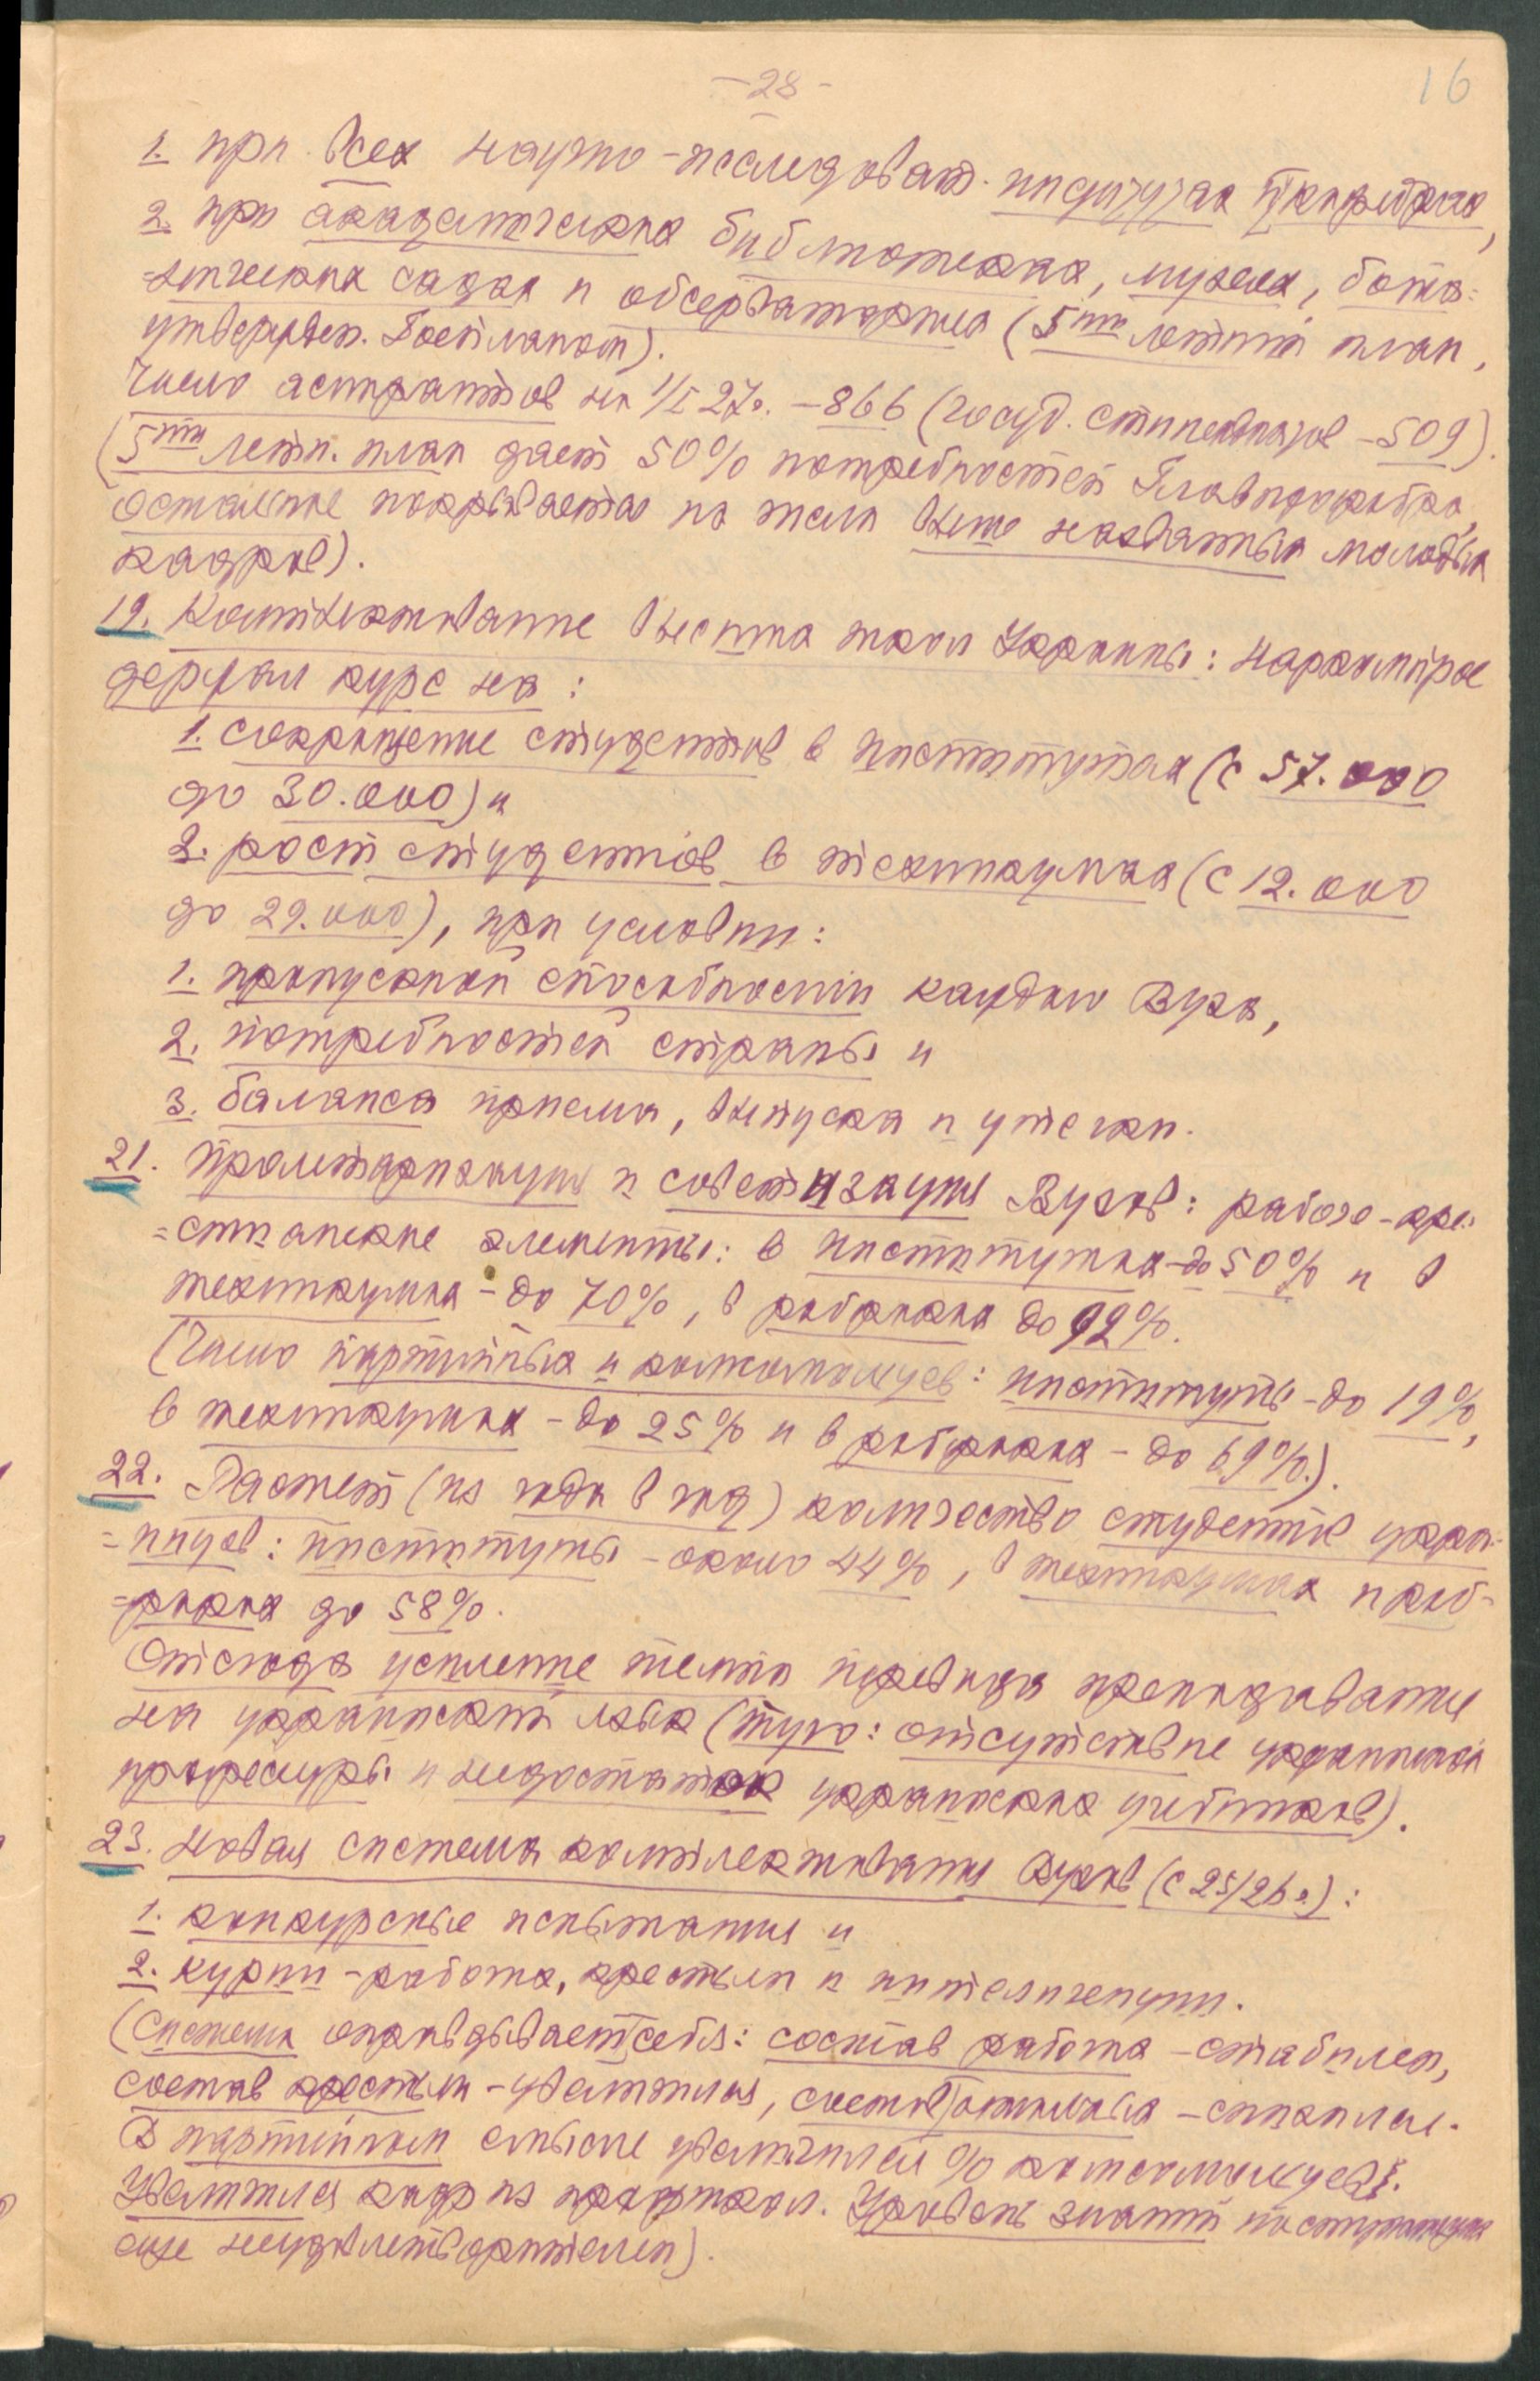 -28-
16
1. при всех научно-исследоват. институтах и кафедрах,
2. при академических библиотеках, музеях, бота=
=нических садах и обсерваториях (5ти летний план,
утвержден. Госпланом).
Число аспирантов на 1/I 27г. - 866 (госуд. стипендиатов - 509).
(5ти летн. план дает 50% потребностей Главпрофобра,
остальные покрывается из числа выше названных молодых
кадров).
19. Комплектование высших школ Украины: Наркомпрос
держал курс на:
1. сокращение студентов в институтах (с 57.000
до 30.000) и
2. рост студентов в техникумах (с 12.000
до 29.000), при условии:
1. пропускной способности каждого Вуза,
2. потребностей страны и
3. баланса приема, выпуска и утечки.
21. Пролетаризация и советизация Вузов: рабоче-кре=
=стьянские элементы: в институтах - до 50% и в
техникумах - до 70%, в рабфаках до 92%.
(Число партийных и комсомольцев: институты - до 19%,
в техникумах - до 25% и в рабфаках - до 69%).
22. Растет (из года в год) количество студентов украи=
=нцев: институты - около 44%, в техникумах и раб-
=факах до 58%.
Отсюда усиление темпа перевода преподавания
на украинский язык (туго: отсутствие украинской
професуры и недостаток украинских учебников).
23. Новая система комплектования Вузов (с 25/26 г.):
1. конкурсные испытания и
2. курии - рабочих, крестьян и интелигенции.
(Система оправдывает себя: состав рабочих - стабилен,
состав крестьян - увеличился, состав остальных - снизился.
В партийном смысле увеличился % комсомольцев.
Увеличился кадр из профшкол. Уровень знаний поступающих
еще неудовлетворителен).